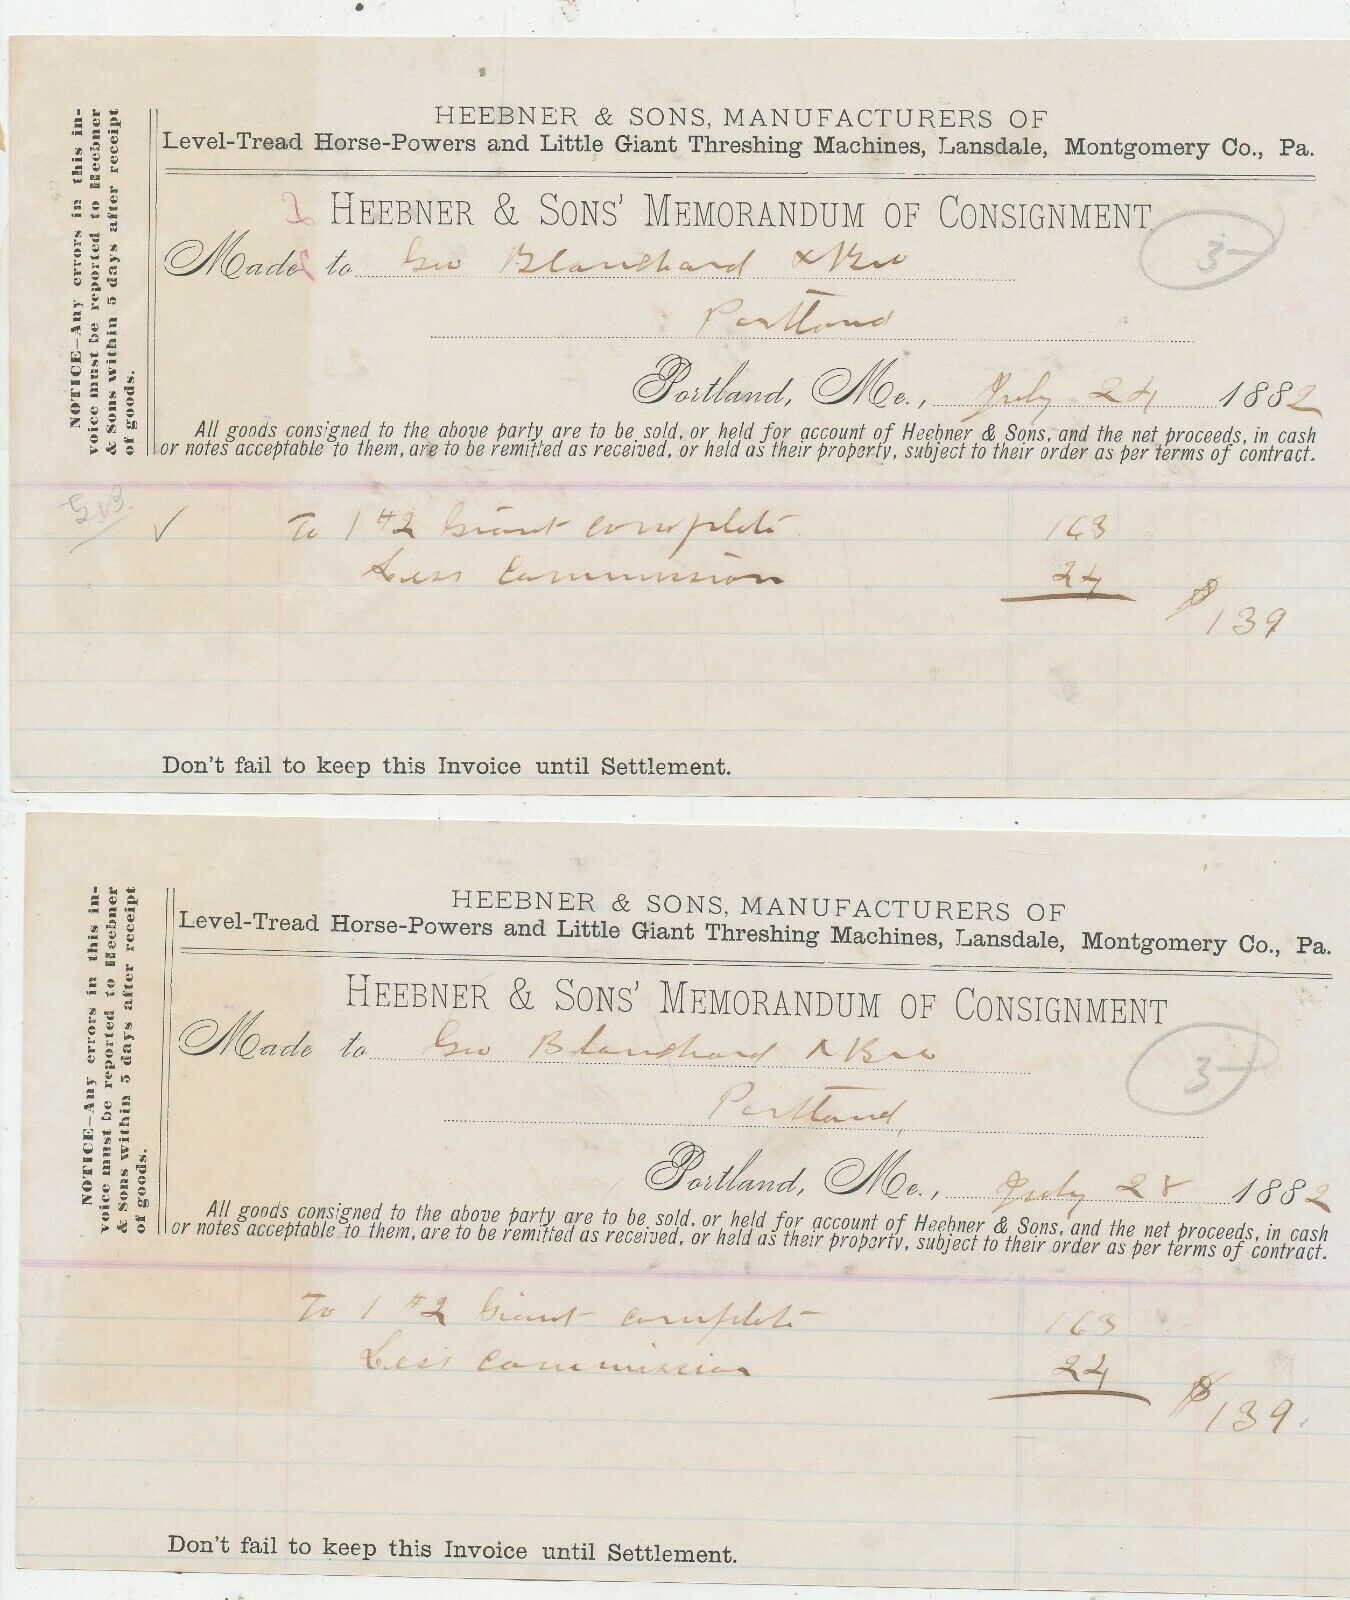 HEEBNER & SONS, MANUFACTURERS OF
Level-Tread Horse-Powers and Little Giant Threshing Machines, Lansdale, Montgomery Co., Pa.
HEEBNER & SONS' MEMORANDUM OF CONSIGNMENT
3-
Made to Geo Blanchard & Bro
Portland
Portland, Me., July 24 1882
All goods consigned to the above party are to be sold, or held for account of Heebner & Sons, and the net proceeds, in cash
or notes acceptable to them, are to be remitted as received, or held as their property, subject to their order as per terms of contract.
NOTICE—Any errors in this in-
voice must be reported to Heebner
& Sons within 5 days after receipt
of goods.
✓ To 1 #2 Giant complete 163
Less Commission 24
$139
Don't fail to keep this Invoice until Settlement.
HEEBNER & SONS, MANUFACTURERS OF
Level-Tread Horse-Powers and Little Giant Threshing Machines, Lansdale, Montgomery Co., Pa.
HEEBNER & SONS' MEMORANDUM OF CONSIGNMENT
3-
Made to Geo Blanchard & Bro
Portland,
Portland, Me., July 28 1882
All goods consigned to the above party are to be sold, or held for account of Heebner & Sons, and the net proceeds, in cash
or notes acceptable to them, are to be remitted as received, or held as their property, subject to their order as per terms of contract.
NOTICE—Any errors in this in-
voice must be reported to Heebner
& Sons within 5 days after receipt
of goods.
To 1 #2 Giant complete 163
Less Commission 24
$139.
Don't fail to keep this Invoice until Settlement.